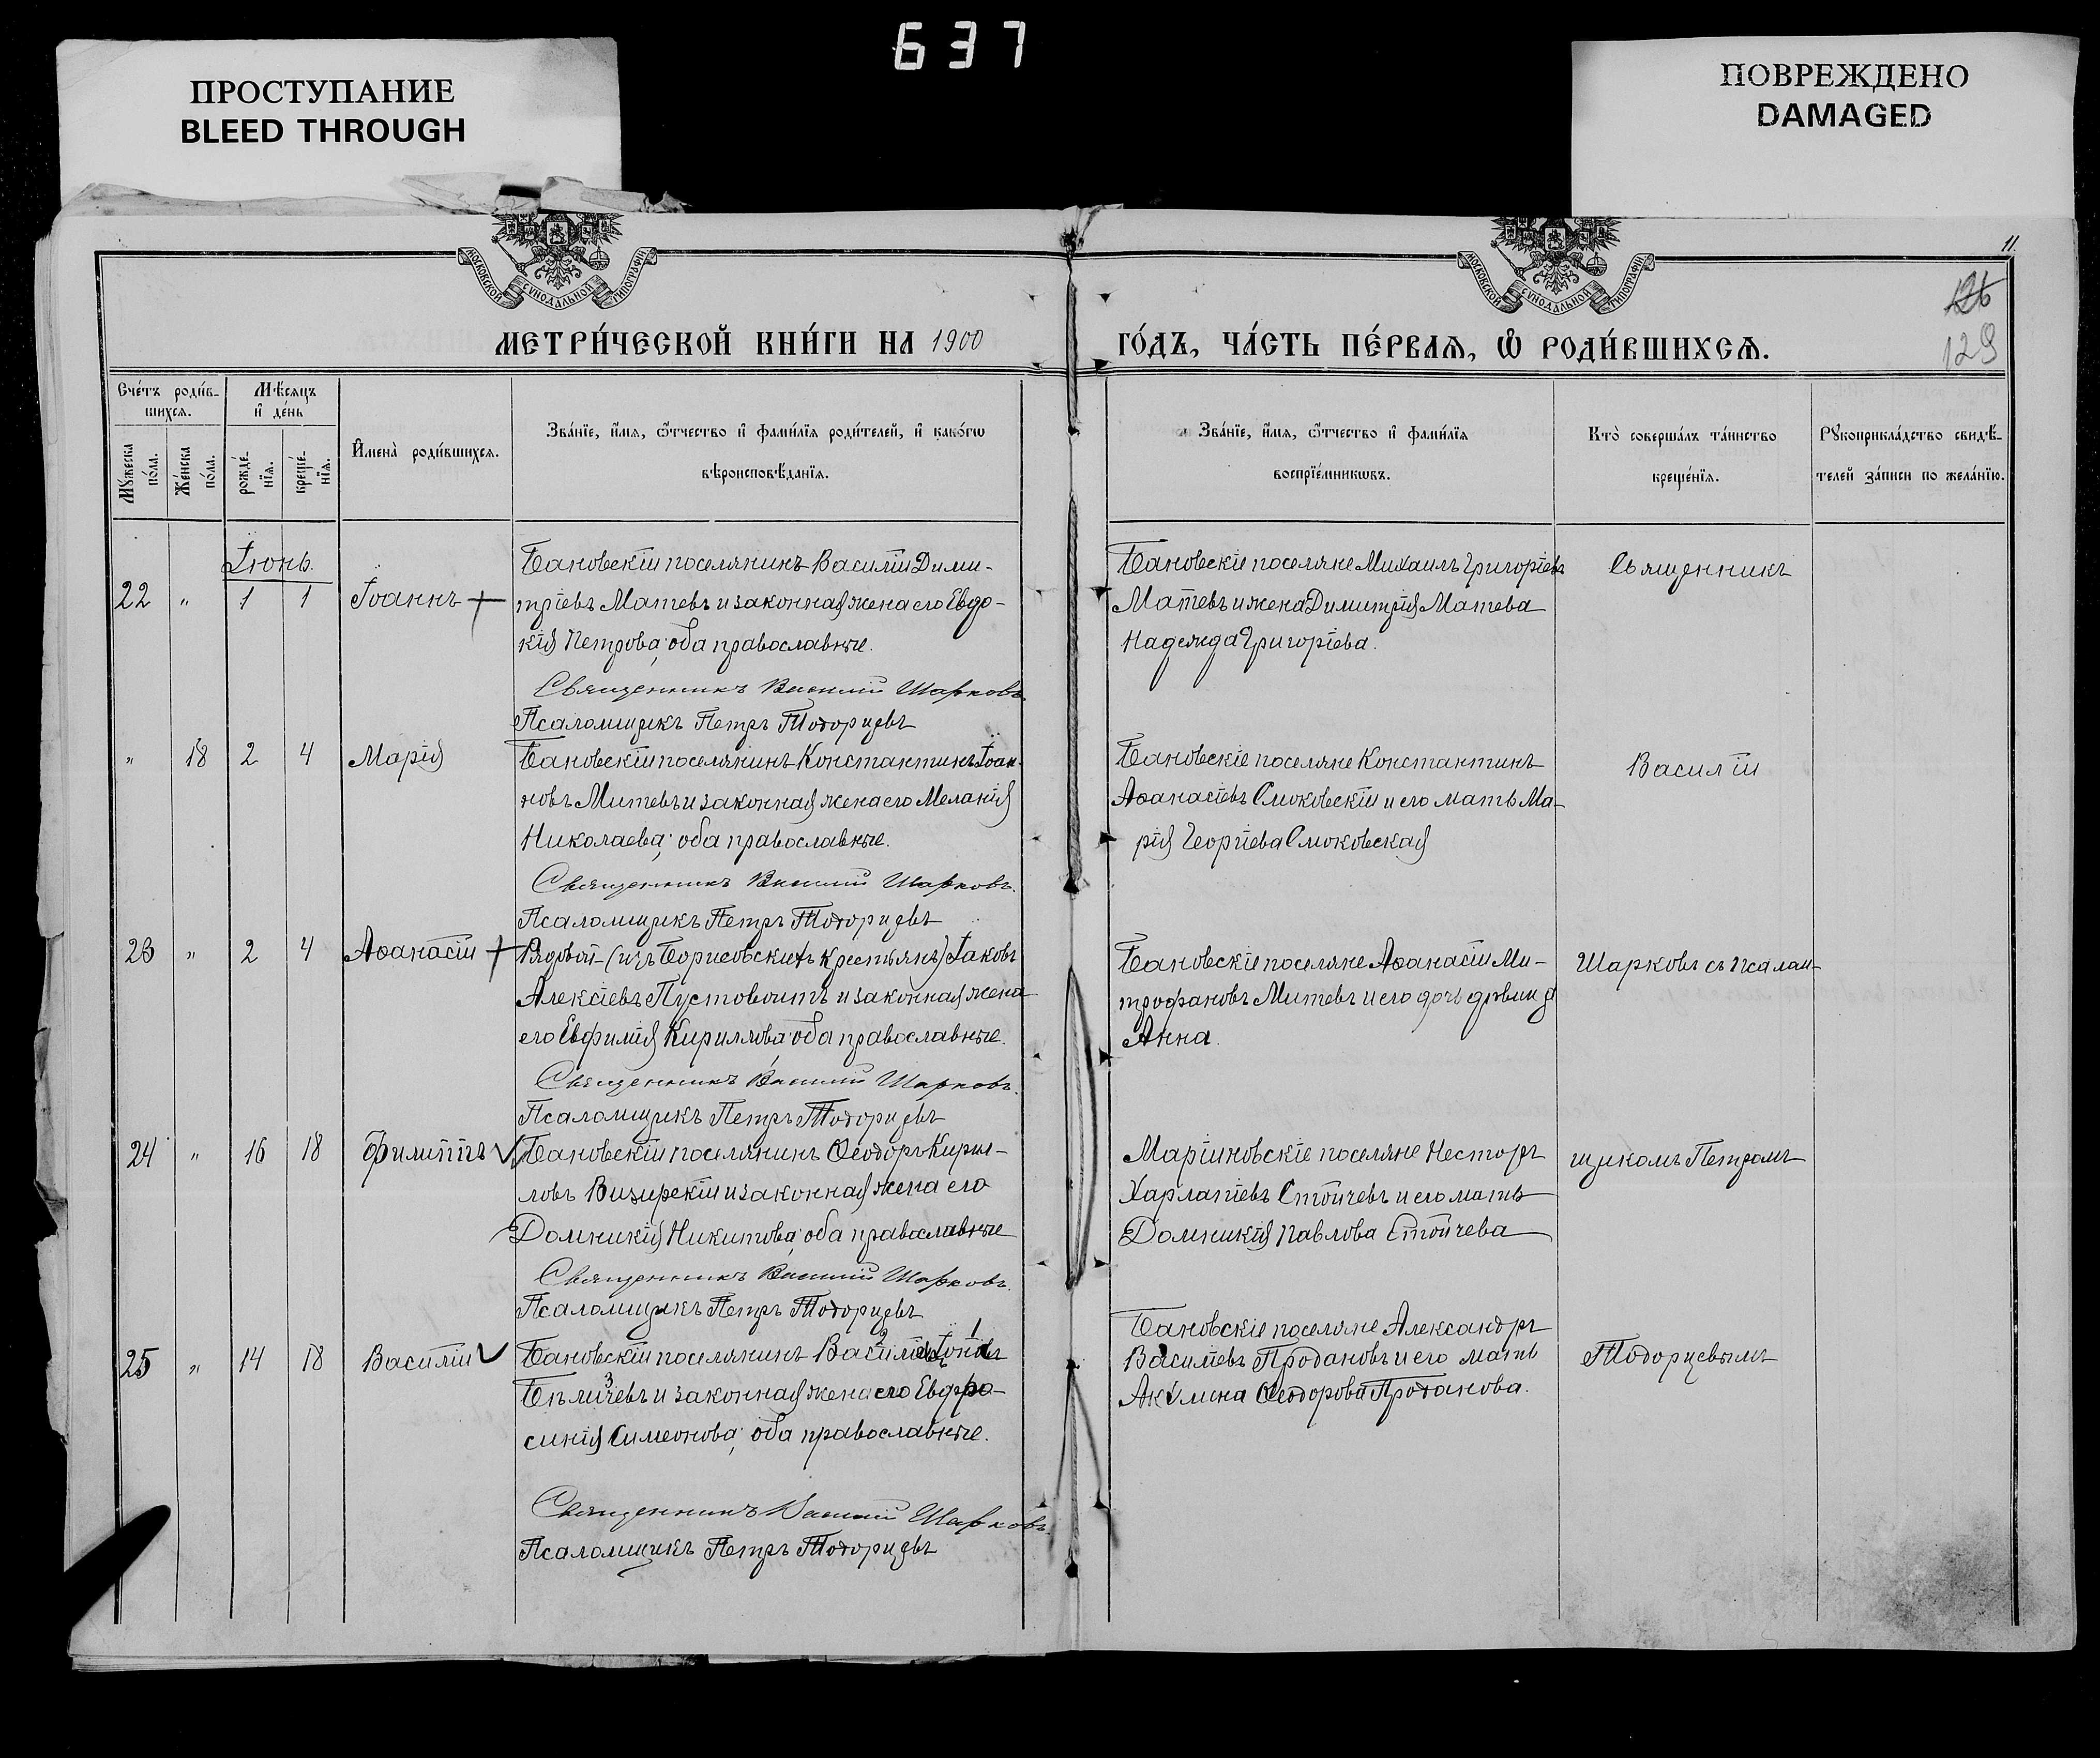 637
ПРОСТУПАНИЕ
BLEED THROUGH
ПОВРЕЖДЕНО
DAMAGED
МОСКОВСКОЙ СѴНОДАЛЬНОЙ ТИПОГРАФІИ
МОСКОВСКОЙ СѴНОДАЛЬНОЙ ТИПОГРАФІИ
11.
126
129
МЕТРИ́ЧЕСКОЙ КНИ́ГИ НА 1900
ГО́ДЪ, ЧА́СТЬ ПЕ́РВАѦ, Ѡ РОДИ́ВШИХСѦ.
Сче́тъ роди́в-
шихсѧ.
Мѣ́сѧцъ
и҆ де́нь
Мꙋ́жеска
по́ла.
Же́нска
по́ла.
рожде́-
нїѧ.
креще́-
нїѧ.
И҆мена̀ роди́вшихсѧ.
Зва́нїе, и҆́мѧ, ѻ҆́тчество и҆ фами́лїѧ роди́телей, и҆ како́гѡ
вѣроисповѣ́данїѧ.
Зва́нїе, и҆́мѧ, ѻ҆́тчество и҆ фами́лїѧ
воспрїе́мникѡвъ.
Кто̀ соверша́лъ та́инство
креще́нїѧ.
Рꙋкоприкла́дство свидѣ́-
телей за́писи по жела́нїю.
Іюнь.
22 " 1 1 Іоаннъ +
Бановскій поселянинъ Василій Дими-
тріевъ Матевъ и законная жена его Евдо-
кія Петрова; оба православные.
Священникъ Василій Шарковъ
Псаломщикъ Петръ Тодорцевъ
Бановскіе поселяне Михаилъ Григоріевъ
Матевъ и жена Димитрія Матева
Надежда Григоріева.
Священникъ
" 18 2 4 Марія
Бановскій поселянинъ Константинъ Іоан-
новъ Митевъ и законная жена его Меланія
Николаева; оба православные.
Священникъ Василій Шарковъ.
Псаломщикъ Петръ Тодорцевъ
Бановскіе поселяне Константинъ
Аѳанасіевъ Смоковскій и его мать Ма-
рія Георгіева Смоковская
Василій
23 " 2 4 Аѳанасій +
Рядовой (изъ Борисовскихъ крестьянъ) Іаковъ
Алексіевъ Пустовоитъ и законная жена
его Евфимія Кириллова; оба православные.
Священникъ Василій Шарковъ.
Псаломщикъ Петръ Тодорцевъ
Бановскіе поселяне Аѳанасій Ми-
трофановъ Митевъ и его дочь дѣвица
Анна.
Шарковъ съ псалом-
24 " 16 18 Филиппъ ✓
Бановскій поселянинъ Ѳеодоръ Кирил-
ловъ Визирскій и законная жена его
Домникія Никитова; оба православные
Священникъ Василій Шарковъ.
Псаломщикъ Петръ Тодорцевъ
Маріиновскіе поселяне Несторъ
Харлапіевъ Стойчевъ и его мать
Домникія Павлова Стойчева
щикомъ Петромъ
25 " 14 18 Василій ✓
Бановскій поселянинъ Василіевъ 2 Іоновъ 1
Бѣличевъ 3 и законная жена его Евфро-
синія Симеонова; оба православные.
Священникъ Василій Шарковъ.
Псаломщикъ Петръ Тодорцевъ
Бановскіе поселяне Александръ
Василіевъ Продановъ и его мать
Акулина Ѳеодорова Проданова.
Тодорцевымъ